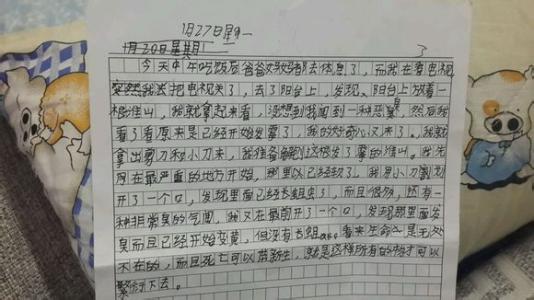 1月27日星一
1月20日星期一
3
今天中午吃饭后爸爸妈妈都去休息了，而我在看电视
突然我去把电视关了，去了阳台上，发现，阳台上放着一
根淮山，我就拿起来看，没想到我闻到一种恶臭，然后我
看了看原来是已经开始发霉了，我的好奇心又来了。我就
拿出剪刀和小刀来，我准备解剖这根发了霉的淮山。我先
在最严重的地方开始，那里以已经软了，我用小刀划
开了一个口，发现里面已经长蛆虫了，而且很多，还有一
种非常臭的气闻，我又在最前开了一个口，发现那里面发
臭而且已经开始变黄，但没有长蛆。看来生命是无处
不在的，而且死亡可以带新生，就是这样所有的物才可以
繁衍下去。